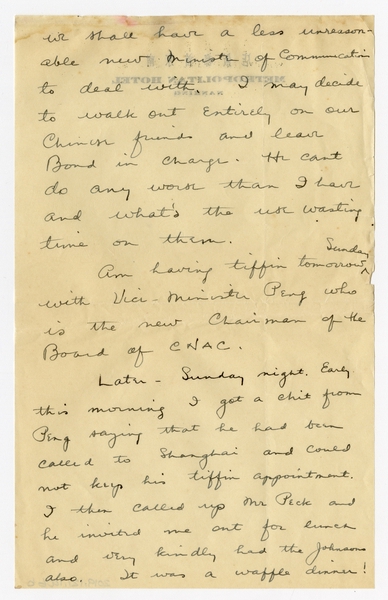 we shall have a less unreason-
able new Minister of Communications
to deal with. I may decide
to walk out Entirely on our
Chinese friends and leave
Bond in charge. He cant
do any worse than I have
and what's the use wasting
time on them.
Am having tiffin tomorrow Sunday
with Vice-Minister Peng who
is the new Chairman of the
Board of CNAC.
Later - Sunday night. Early
this morning I got a chit from
Peng saying that he had been
called to Shanghai and could
not keep his tiffin appointment.
I then called up Mr Peck and
he invited me out for lunch
and very kindly had the Johnsons
also. It was a waffle dinner!